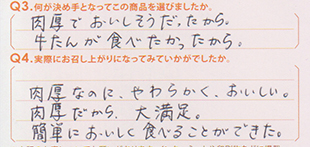 Q3.何が決め手となってこの商品を選びましたか。
肉厚でおいしそうだったから。
牛たんが食べたかったから。
Q4.実際にお召し上がりになってみていかがでしたか。
肉厚なのに、やわらかく、おいしい。
肉厚だから、大満足。
簡単においしく食べることができた。